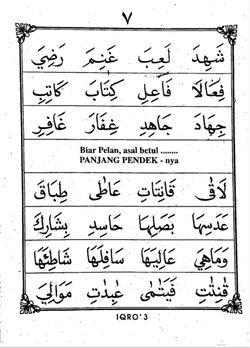 ٧
شَهِدَ لَعِبَ غَنِمَ رَضِيَ
فِعَالًا فَاعِلِ كِتَابَ كَاتِبِ
جِهَادَ جَاهِدِ غِفَارَ غَافِرِ
Biar Pelan, asal betul ........
PANJANG PENDEK - nya
لَاقَ قَانِتَاتِ عَاطَى طِبَاقَ
عَدَسِهَا بَصَلِهَا حَاسِدِ بِشَارِكَ
وَمَاهِيَ عَالِيَهَا سَافِلَهَا شَاطِئِهَا
قٰنِتٰتِ فَيَتٰمٰى عٰبِدٰتِ مَوَالِيَ
IQRO' 3